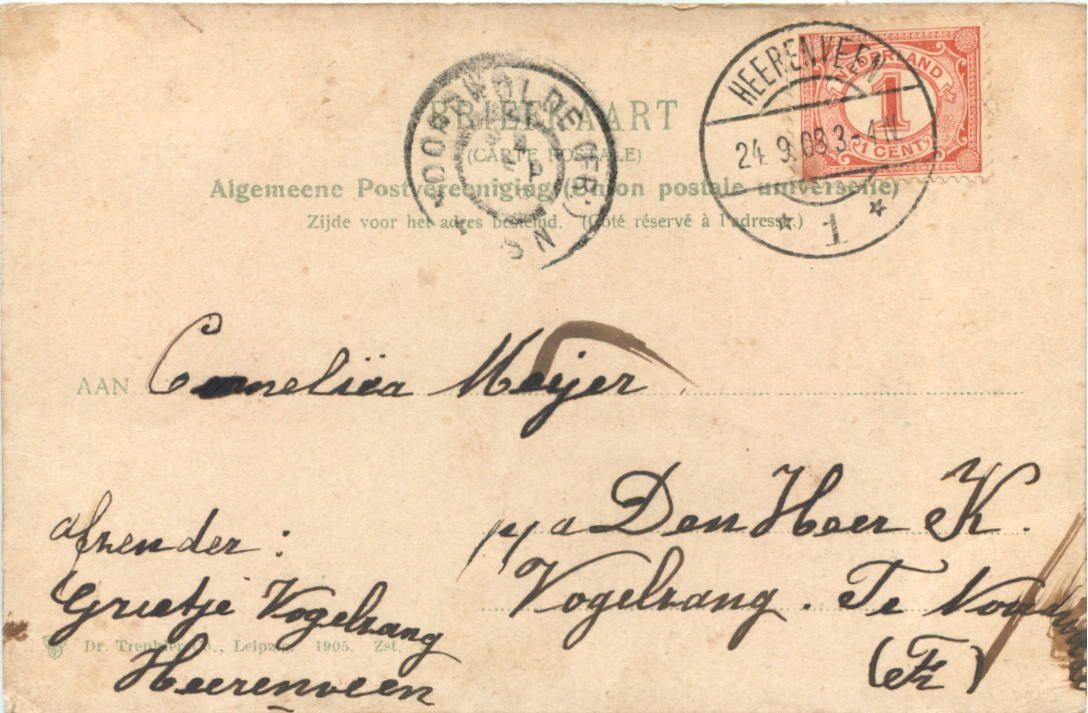 BRIEFKAART
(CARTE POSTALE)
Algemeene Postvereeniging (Union postale universelle)
Zijde voor het adres bestemd. (Côté réservé à l'adresse.)
NOORDWOLDE (FR:)
HEERENVEEN
24. 9.08 3-4 N
1
NEDERLAND
1
1 CENT
AAN Corneliëa Meijer
p/a Den Heer K.
Vogelzang. Te
(Fr)
afzender:
Grietje Vogelzang
Heerenveen
Dr. Trenkler Co., Leipzig. 1905. Zst.